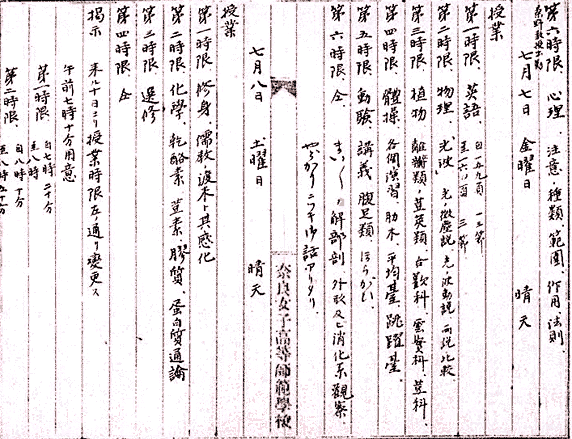 第六時限、心理、注意、種類、範圍、作用、法則、
七月七日 金曜日 晴天
授業
第一時限、英語、
第二時限、物理、光波、光ノ微塵説、光ノ波動説、両説比較
第三時限、植物 離瓣類、荳莢類、合歡科、雲實科、荳科、
第四時限、體操、各個演習、肋木、平均臺、跳躍臺、
第五時限、動験、講義、腹足類、ほらがい、
第六時限、仝、まい〳〵ノ解部剖、外形及ビ消化系觀察、
やどかりニツキ御話アリタリ、
奈良女子高等師範學校
七月八日 土曜日 晴天
授業
第一時限、修身、儒教渡来ト其感化
第二時限、化學、乾酪素、荳素、膠質、蛋白質通論
第三時限、選修
第四時限、仝
掲示 来ル十日ヨリ授業時限左ノ通リ變更ス
午前七時十分用意
第一時限、自七時二十分
至八時
第二時限、自八時十分
至八時五十分